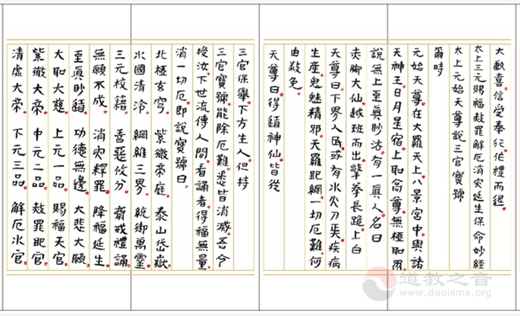 大歡喜信受奉行作禮而退
太上三元賜福赦罪解厄消災延生保命妙經
太上元始天尊說三官寶號
爾時
元始天尊在大羅天上八景宮中與諸
天神王日月星宿上聖高尊無極聖眾
說無上至真妙法有一真人名曰
夾腳大仙越班而出擎拳長跪上白
天尊曰下界人民或有水火刀兵疾病
生產鬼魅精邪天羅地網一切厄難何
由赦免
天尊曰得鎮神仙皆從
三官保舉下方生人但持
三官寶號能除厄難悉皆消滅吾今
授汝下世流傳人間看誦者得福無量
消一切厄即說寶號曰
北極玄穹 紫微帝庭 泰山岱嶽
水國清泠 綱維三界 統御萬靈
三元校籍 善惡攸分 齋戒禮誦
無願不成 消災釋罪 降福延生
至真妙道 功德無邊 大悲大願
大聖大慈 上元一品 賜福天官
紫微大帝 中元二品 赦罪地官
清虛大帝 下元三品 解厄水官
道教之音
www.daoisms.org